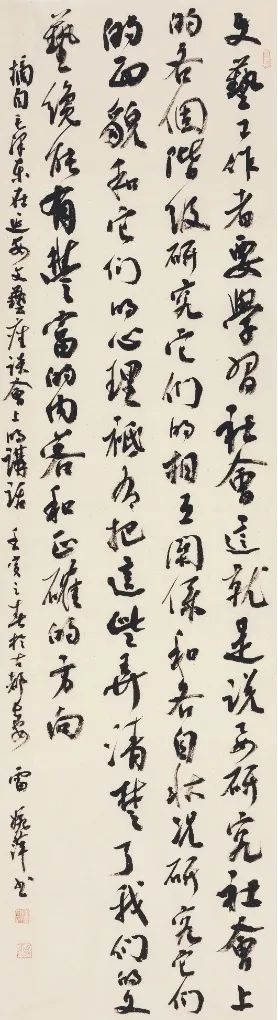 文藝工作者要學習社會這就是说要研究社會上
的各個階级研究它们的相互關係和各自狀况研究它们
的面貌和它们的心理祗有把這些弄清楚了我们的文
藝纔能有豐富的内容和正確的方向
摘自毛泽東在延安文藝座談會上的講話 壬寅之春於古都長安 雷 萍书